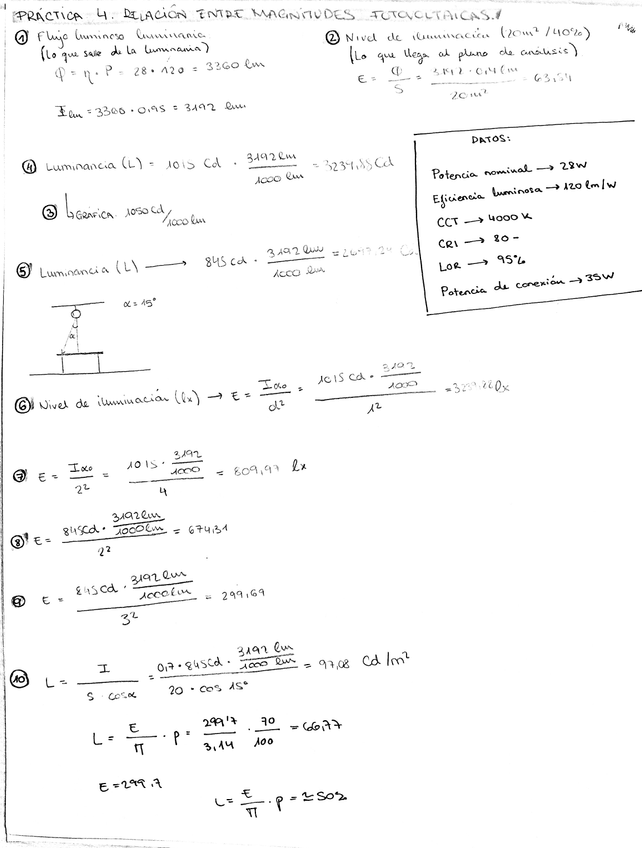 PRÁCTICA 4. RELACIÓN ENTRE MAGNITUDES FOTOVOLTAICAS.
① Flujo luminoso luminaria
(lo que sale de la luminaria)
φ = η · P = 28 · 120 = 3360 lm
Φlm = 3360 · 0,95 = 3192 lm
② Nivel de iluminación (20m² / 40%)
(Lo que llega al plano de análisis)
E = φ/S = 3192 · 0,4 lm / 20 m² = 63,84
DATOS:
Potencia nominal → 28W
Eficiencia luminosa → 120 lm/W
CCT → 4000 K
CRI → 80 -
LOR → 95%
Potencia de conexión → 35W
④ Luminancia (L) = 1015 Cd · 3192 lm / 1000 lm = Cd
③ ↳ GRÁFICA 1050 Cd/1000 lm
⑤ Luminancia (L) → 845 cd · 3192 lm / 1000 lm =
α = 15°
α
⑥ Nivel de iluminación (lx) → E = Iα0 / d² = 1015 Cd · 3192/1000 / 1² = lx
⑦ E = Iα0 / 2² = 1015 · 3192/1000 / 4 = 809,97 lx
⑧ E = 845Cd · 3192 lm/1000 lm / 2² = 674,31
⑨ E = 845 Cd · 3192 lm/1000 lm / 3² = 299,69
⑩ L = I / S · cosα = 0,7 · 845Cd · 3192 lm/1000 lm / 20 · cos 15° = 97,08 Cd/m²
L = E/π · p = 299,7/3,14 · 70/100 = 66,77
E = 299,7
L = E/π · p =